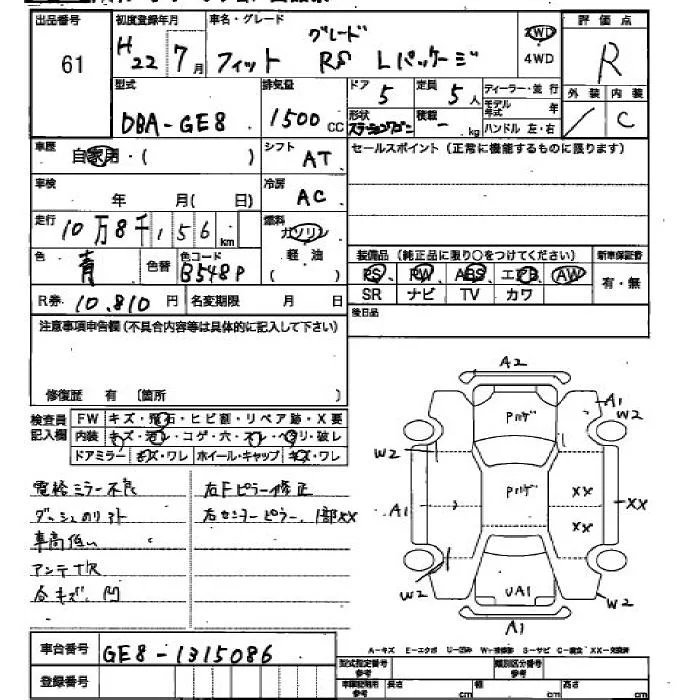 出品番号 初度登録年月 車名・グレード 評価点
61 H22 7月 フィット グレード RS Lパッケージ 2WD 4WD R
型式 排気量 ドア 定員 ディーラー・並行 外装 内装
DBA-GE8 1500cc 5 5人 モデル年式 年 / C
形状 ステーションワゴン 積載 - kg ハンドル 左・右
車歴 自家用・( ) シフト AT セールスポイント(正常に機能するものに限ります)
車検 年 月( 日) 冷房 AC
走行 10万8千156km 燃料 ガソリン 軽油
色 青 色替 色コード B548P 装備品(純正品に限り○をつけてください) 新車保証書
PS、PW、ABS、エアB、AW 有・無
R券 10,810円 名変期限 月 日 SR ナビ TV カワ
注意事項申告欄(不具合内容等は具体的に記入して下さい) 後日品
修復歴 有 〔箇所 〕
検査員記入欄 FW キズ・飛石・ヒビ割・リペア跡・X要
内装 キズ・汚レ・コゲ・穴・スレ・ヘタリ・破レ
ドアミラー キズ・ワレ ホイール・キャップ キズ・ワレ
電格ミラー不良 右Fピラー修正
ダッシュのリアト 右センターピラー1部XX
車高低い
アンテナ欠
各キズ、凹
A2
A1
W2
Pハゲ
W2 W2
Pハゲ XX
A1 XX
XX
W2 UA1 W2
A1
A-キズ E-エクボ U-凹み W-補修跡 S-サビ C-腐食 XX-交換済
車台番号 GE8-1315086
登録番号
型式指定番号 参考 類別区分番号 参考
車庫証明用 参考 長さ cm 幅 cm 高さ cm